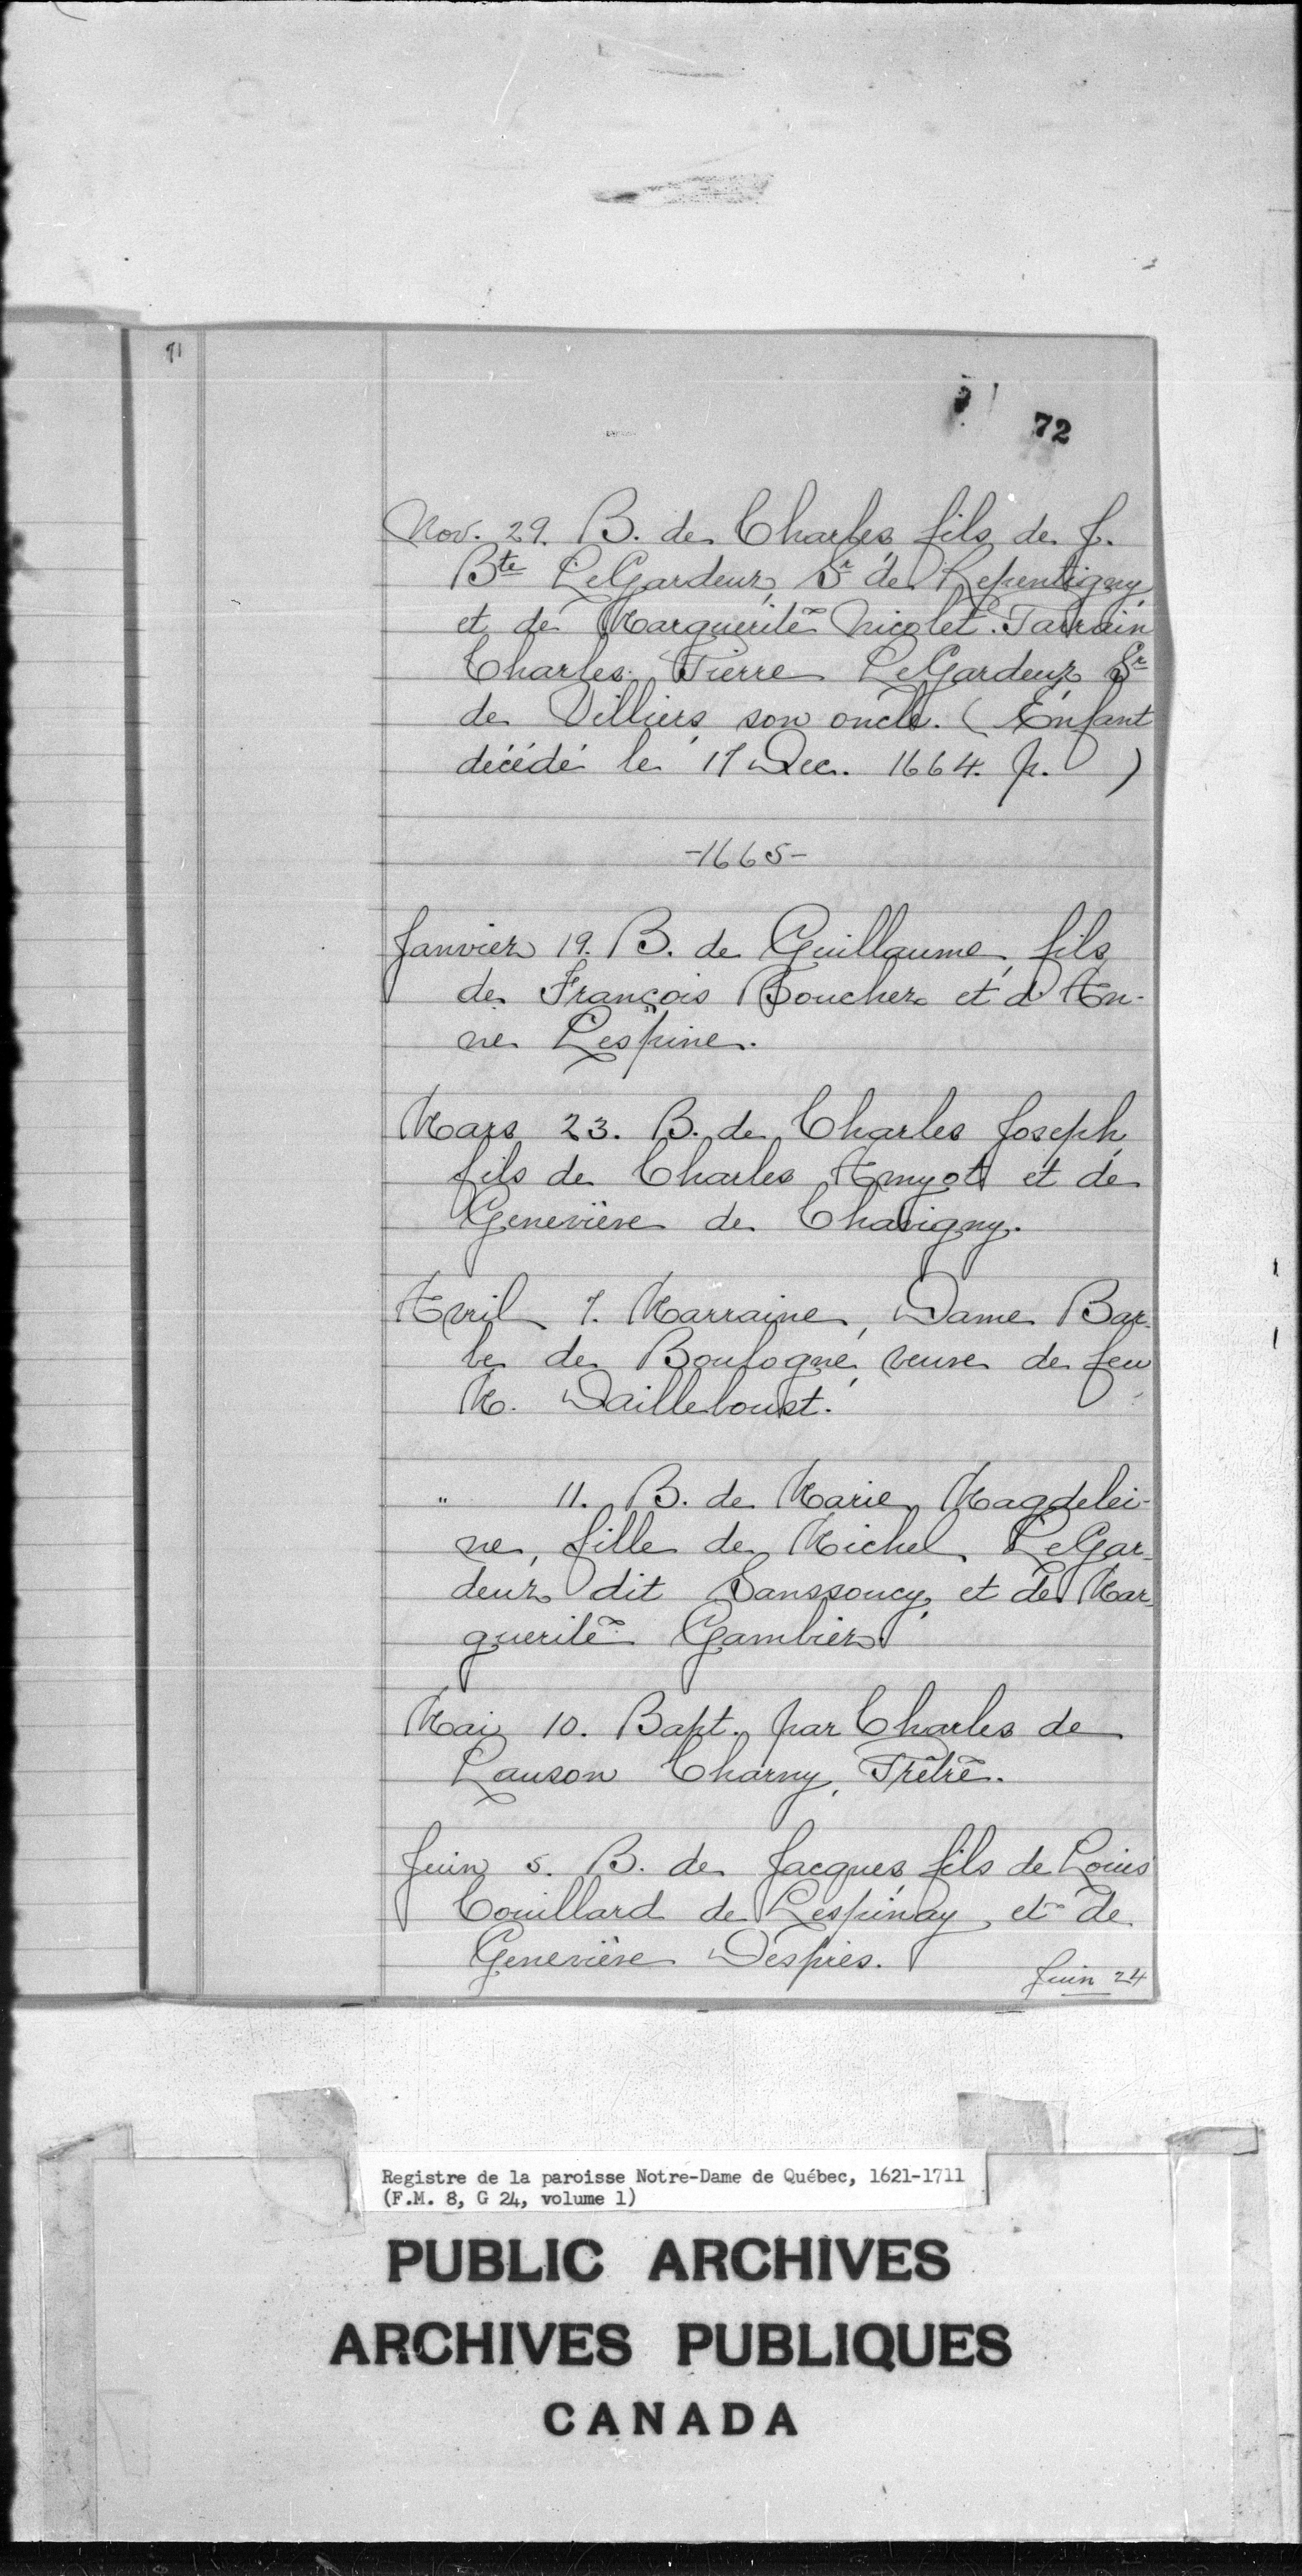 91
72
Nov. 29. B. de Charles, fils de J.
Bte LeGardeur, Sr de Repentigny,
et de Marguerite Nicolet. Parrain
Charles Pierre LeGardeur, Sr
de Villiers, son oncle. (Enfant
décédé le 17 Dec. 1664. p. )
-1665-
Janvier 19. B. de Guillaume, fils
de François Boucher et d'An-
ne Lespine.
Mars 23. B. de Charles Joseph,
fils de Charles Amyot et de
Geneviève de Chavigny.
Avril 7. Marraine, Dame Bar-
be de Boulogne, veuve de feu
M. Dailleboust.
" 11. B. de Marie Magdelei-
ne, fille de Michel LeGar-
deur dit Sanssoucy, et de Mar-
guerite Gambier.
Mai 10. Bapt. par Charles de
Lauson Charny, Prêtre.
Juin 5. B. de Jacques, fils de Louis
Couillard de Lespinay, et de
Geneviève Desprès.
Juin 24
Registre de la paroisse Notre-Dame de Québec, 1621-1711
(F.M. 8, G 24, volume 1)
PUBLIC ARCHIVES
ARCHIVES PUBLIQUES
CANADA